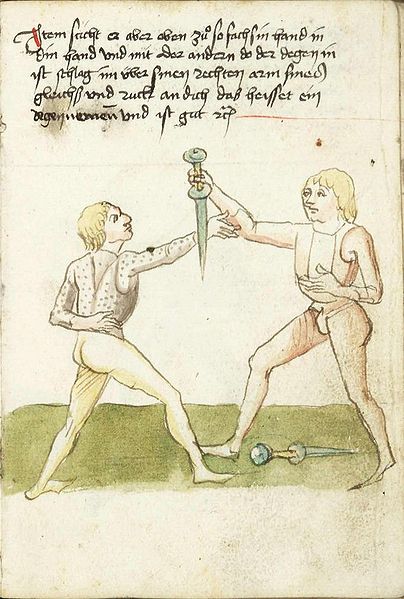 Item sticht er aber oben zů so fach sin hand in
din hand und mit der andern do der degen in
ist schlag im über sinen rechten arm sines
gleichß und ruck an dich das heisset ein
degennemen und ist gut